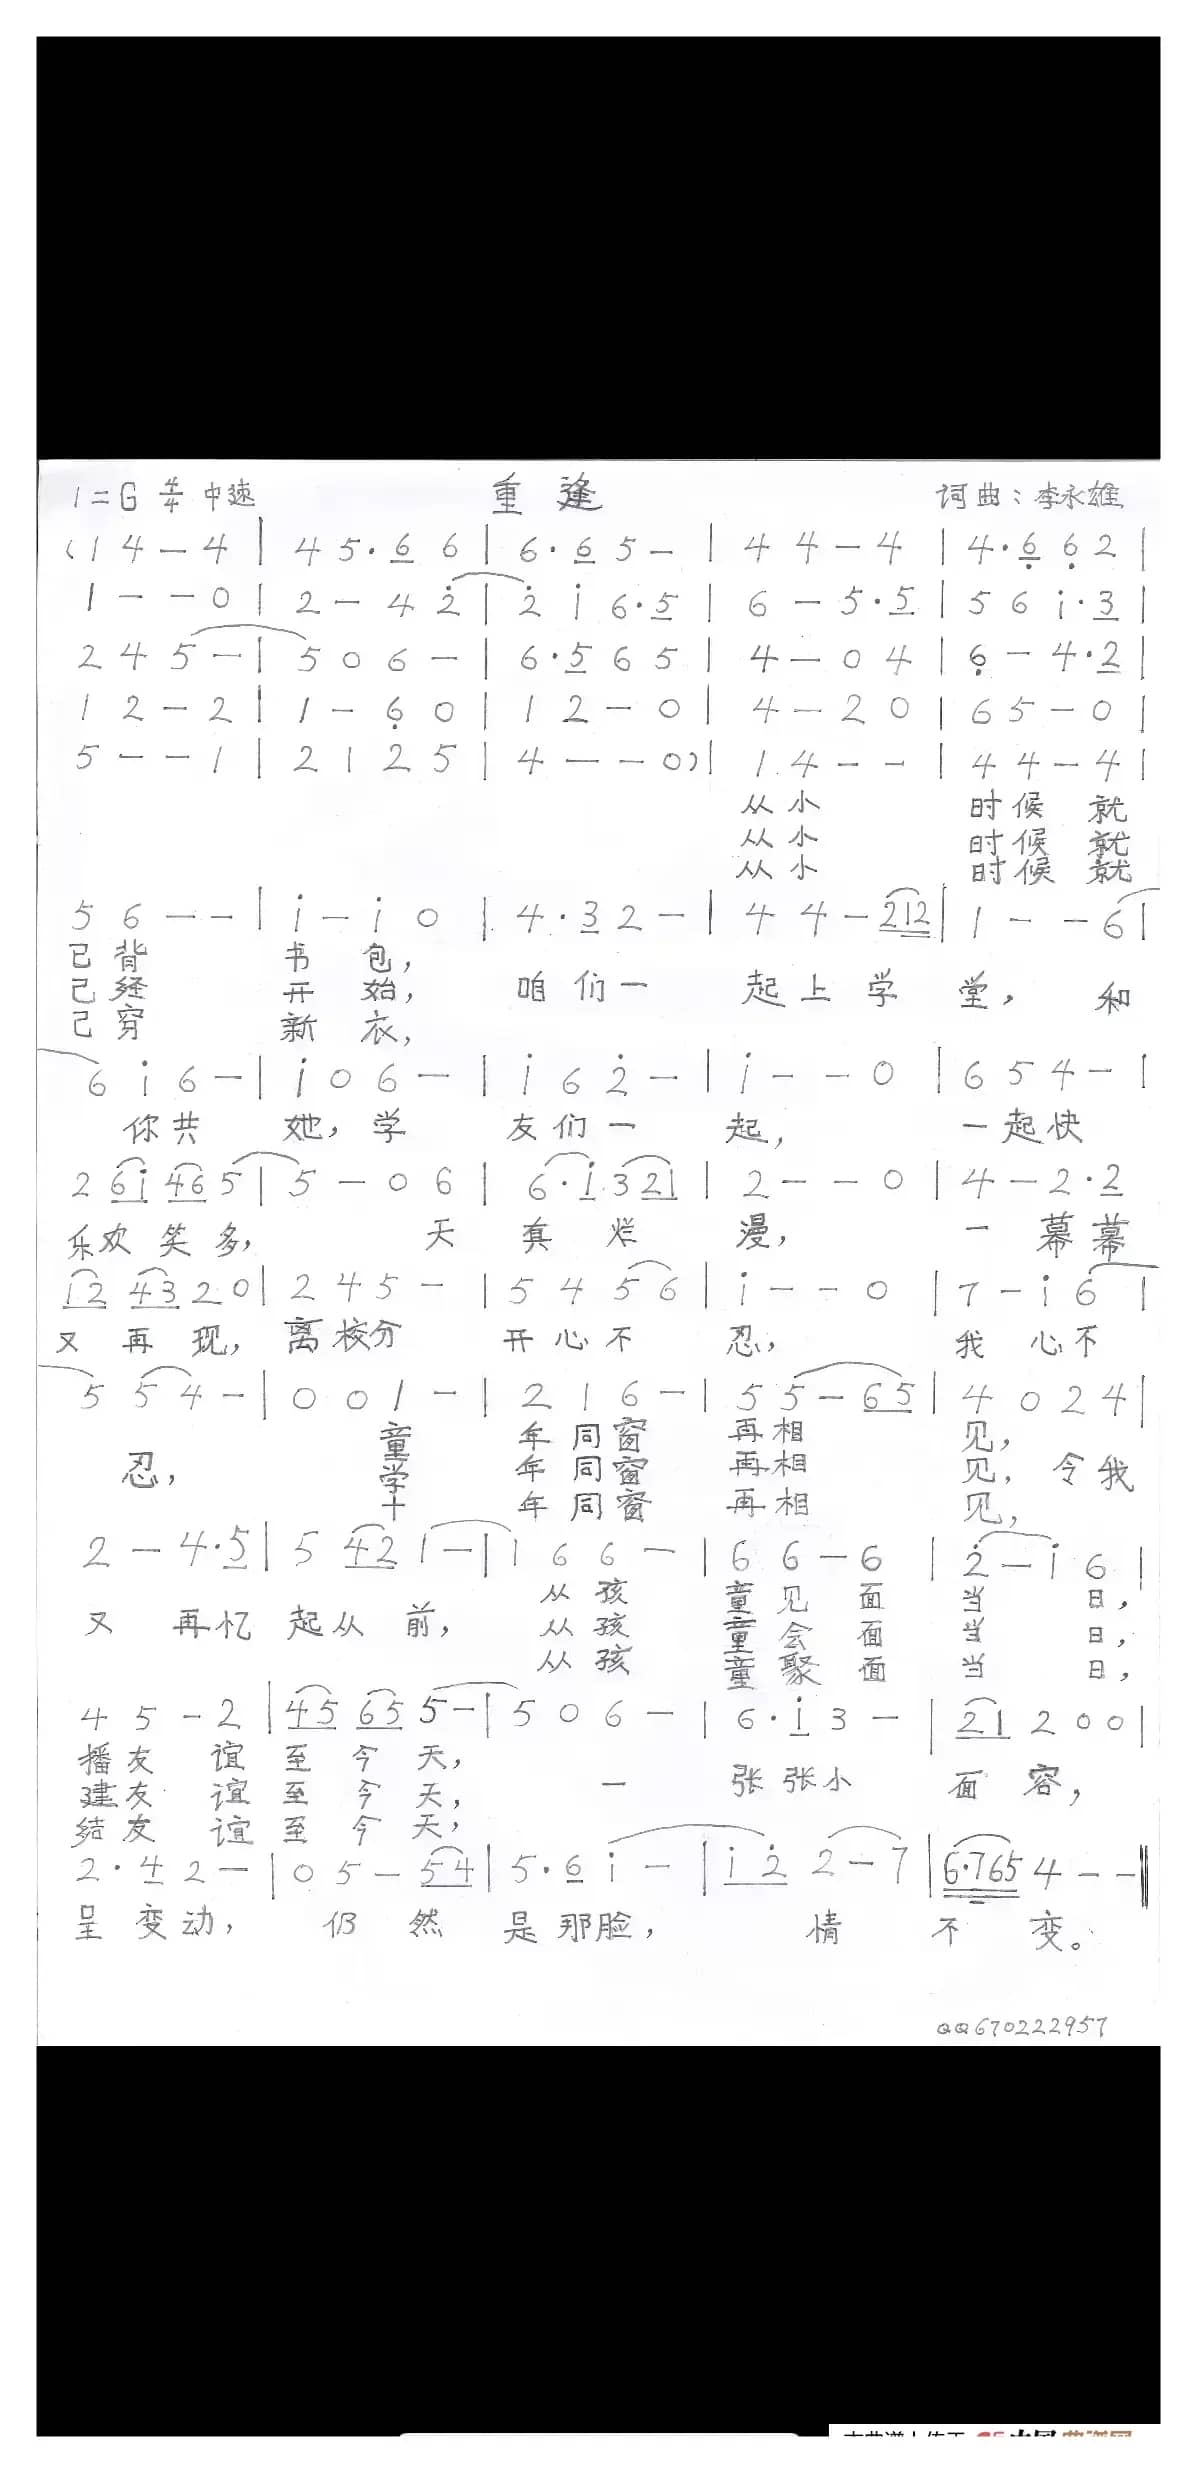 1=G 4/4 中速 重逢 词曲：李永雄
(1 4 — 4 | 4 5· 6 6 | 6· 6 5 — | 4 4 — 4 | 4· 6̣ 6̣ 2 |
1 — — 0 | 2 — 4 2̇ | 2̇ i 6·5 | 6 — 5·5 | 5 6 i·3 |
2 4 5 — | 5 0 6 — | 6·5 6 5 | 4 — 0 4 | 6̣ — 4·2 |
1 2 — 2 | 1 — 6̣ 0 | 1 2 — 0 | 4 — 2 0 | 6 5 — 0 |
5 — — 1 | 2 1 2 5 | 4 — — 0) | 1 4 — — | 4 4 — 4 |
从小 时候 就
从小 时候 就
从小 时候 就
5 6 — — | i — i 0 | 4·3 2 — | 4 4 — 212 | 1 — — 6 |
已背 书包，
已经 开始， 咱们一 起上学 堂， 和
已穿 新衣，
6 i 6 — | i 0 6 — | i 6 2̇ — | i — — 0 | 6 5 4 — |
你共 她，学 友们一 起， 一起快
2 6i 46 5 | 5 — 0 6 | 6·i 3 21 | 2 — — 0 | 4 — 2·2
乐欢笑多， 天 真烂 漫， 一幕幕
i2 43 2 0 | 2 4 5 — | 5 4 5 6 | i — — 0 | 7 — i 6 |
又再现，离校分 开心不 忍， 我心不
5 5 4 — | 0 0 1 — | 2 1 6 — | 5 5 — 65 | 4 0 2 4 |
童 年同窗 再相 见，
忍， 学 年同窗 再相 见，令我
十 年同窗 再相 见，
2 — 4·5 | 5 42 1 — | 1 6 6 — | 6 6 — 6 | 2̇ — i 6 |
从孩 童见面 当日，
又再忆 起从前， 从孩 童会面 当日，
从孩 童聚面 当日，
4 5 — 2 | 45 65 5 — | 5 0 6 — | 6·i 3 — | 21 2 0 0 |
播友谊 至今天，
建友谊 至今天， 一 张张小 面容，
结友谊 至今天，
2·4 2 — | 0 5 — 54 | 5·6 i — | i 2̇ 2 — 7 | 6·765 4 — — ‖
呈变动， 仍然 是那脸， 情 不变。
QQ670222957